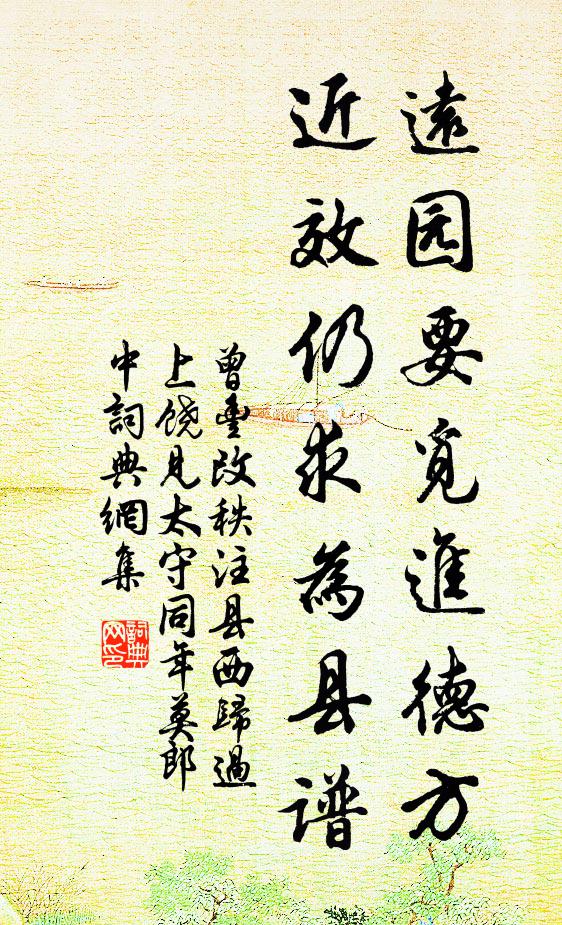 遠园要觅進德方
近效仍求為县谱
曾豊改秩注县西歸過
上饶见太守同年莫郎
中詞典網集
詞典
网印